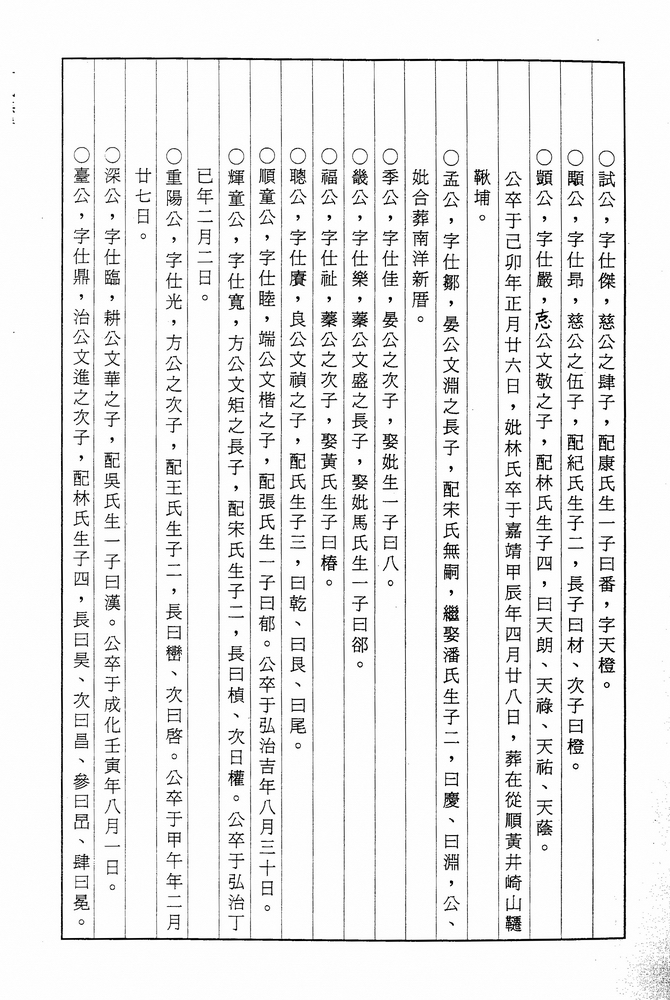 ○試公，字仕傑，慈公之肆子，配康氏生一子曰番，字天橙。
○顒公，字仕昂，慈公之伍子，配紀氏生子二，長子曰材、次子曰橙。
○顗公，字仕嚴，志公文敬之子，配林氏生子四，曰天朗、天祿、天祐、天蔭。
公卒于己卯年正月廿六日，妣林氏卒于嘉靖甲辰年四月廿八日，葬在從順黃井崎山韆
鞦埔。
○孟公，字仕鄒，晏公文淵之長子，配宋氏無嗣，繼娶潘氏生子二，曰慶、曰淵，公、
妣合葬南洋新厝。
○季公，字仕佳，晏公之次子，娶妣生一子曰八。
○畿公，字仕樂，蓁公文盛之長子，娶妣馬氏生一子曰郤。
○福公，字仕祉，蓁公之次子，娶黃氏生子曰椿。
○聰公，字仕賡，良公文禎之子，配氏生子三，曰乾、曰艮、曰尾。
○順童公，字仕睦，端公文楷之子，配張氏生一子曰郁。公卒于弘治吉年八月三十日。
○輝童公，字仕寬，方公文矩之長子，配宋氏生子二，長曰楨、次曰權。公卒于弘治丁
巳年二月二日。
○重陽公，字仕光，方公之次子，配王氏生子二，長曰巒、次曰啓。公卒于甲午年二月
廿七日。
○深公，字仕臨，耕公文華之子，配吳氏生一子曰漢。公卒于成化壬寅年八月一日。
○臺公，字仕鼎，治公文進之次子，配林氏生子四，長曰昊、次曰昌、參曰昂、肆曰冕。